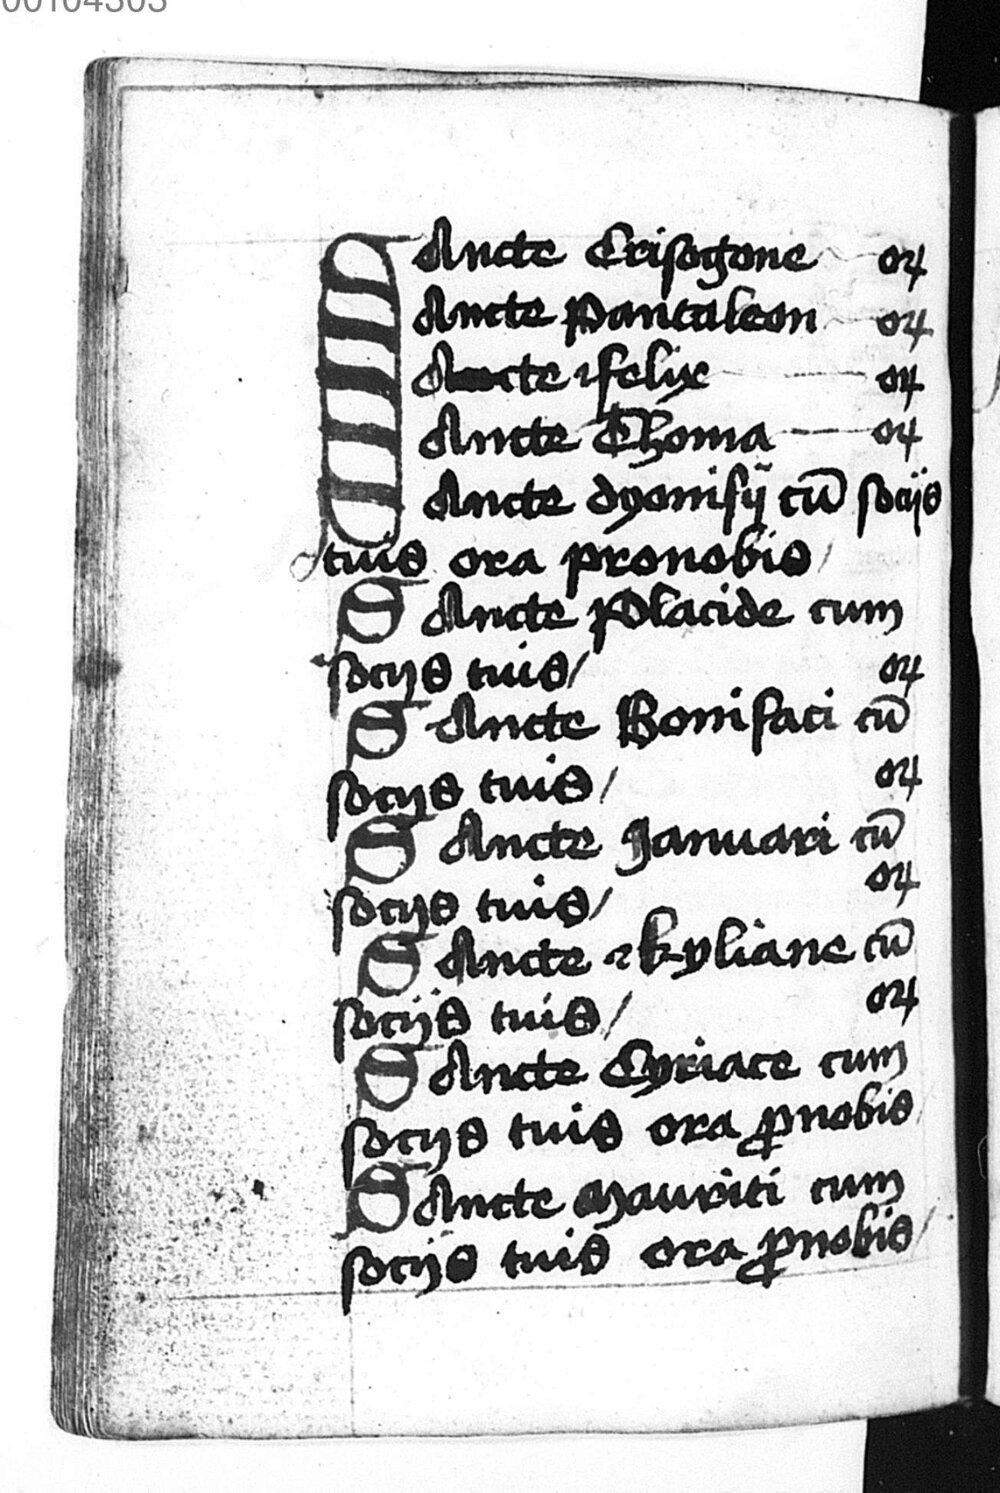 00104303
SAncte Crisogone oꝝ
SAncte Pantaleon oꝝ
SAncte felix oꝝ
SAncte Thoma oꝝ
SAncte dyonisij cū socijs
tuis ora pronobis /
SAncte Placide cum
socijs tuis / oꝝ
SAncte Bonifaci cū
socijs tuis / oꝝ
SAncte Januari cū
socijs tuis / oꝝ
SAncte kyliane cū
socijs tuis / oꝝ
SAncte Cyriace cum
socijs tuis ora ꝓnobis
SAncte Mauriti cum
socijs tuis ora ꝓnobis /